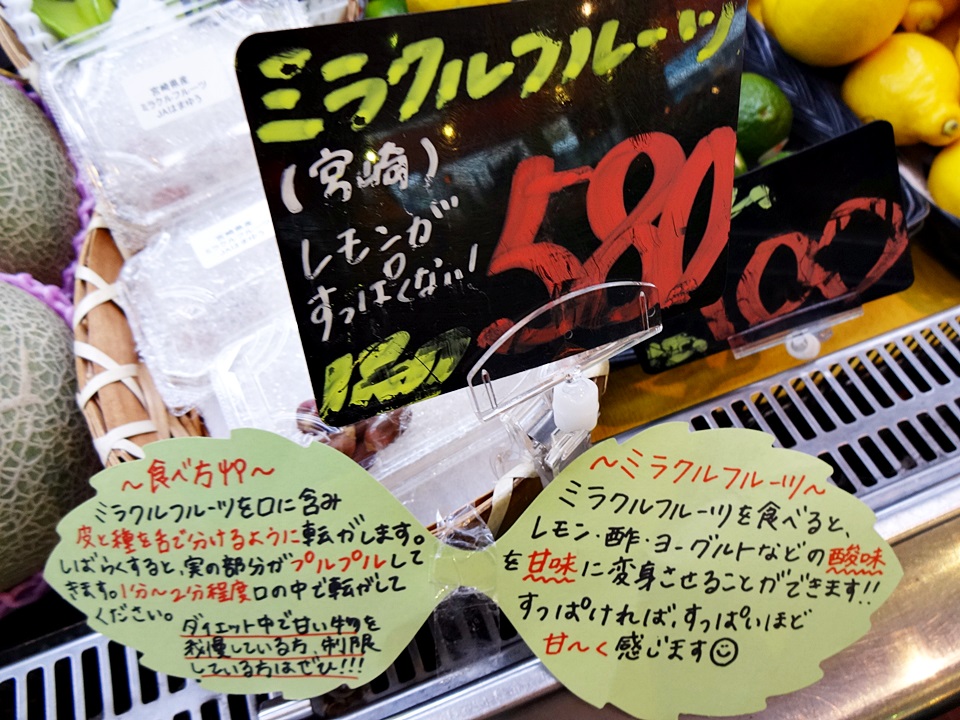 宮崎県産
ミラクルフルーツ
JAはまゆう
宮崎県産
ミラクルフルーツ
ミラクルフルーツ
(宮崎)
レモンが
すっぱくない!
580
100
~食べ方~
ミラクルフルーツを口に含み
皮と種を舌で分けるように転がします。
しばらくすると、実の部分がプルプルして
きます。1分~2分程度口の中で転がして
ください。
ダイエット中で甘い物を
我慢している方、制限
している方はぜひ!!!
~ミラクルフルーツ~
ミラクルフルーツを食べると、
レモン・酢・ヨーグルトなどの酸味
を甘味に変身させることができます!!
すっぱければ、すっぱいほど
甘~く感じます☺